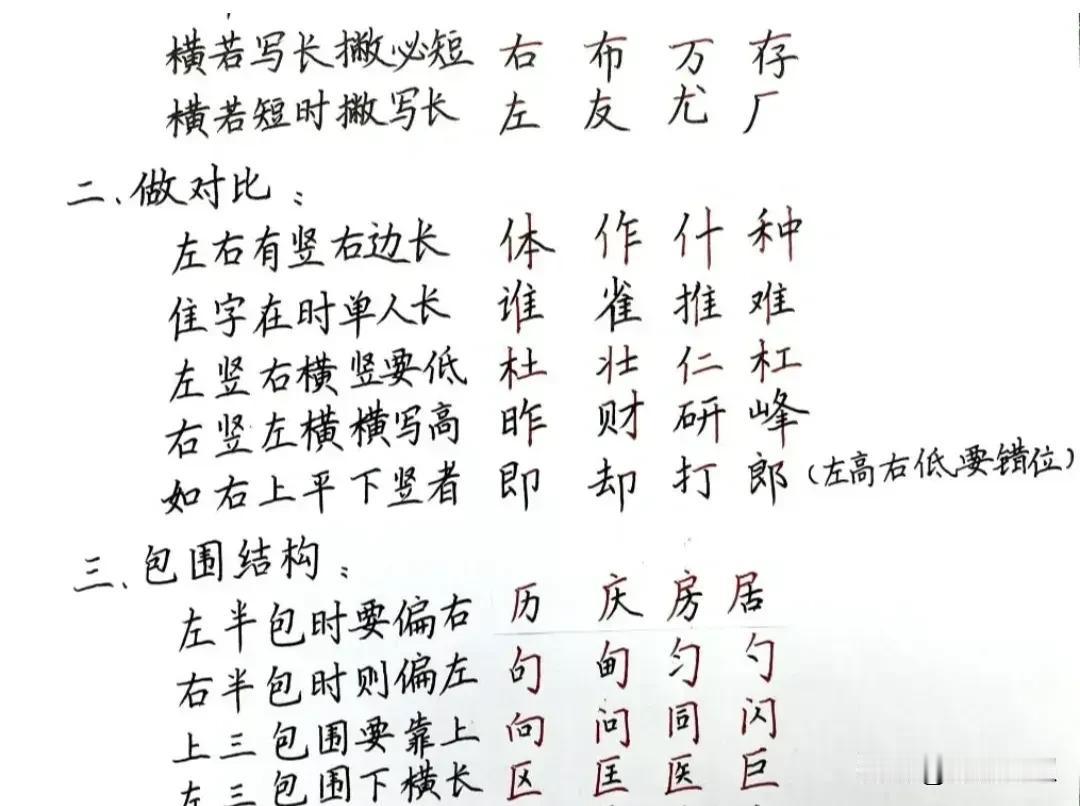 横若写长撇必短 右 布 万 存
横若短时撇写长 左 友 尤 厂
二、做对比：
左右有竖右边长 体 作 什 种
隹字在时单人长 谁 雀 推 难
左竖右横竖要低 杜 壮 仁 杠
右竖左横横写高 昨 财 研 峰
如右上平下竖者 即 却 打 郎（左高右低要错位）
三、包围结构：
左半包时要偏右 历 庆 房 居
右半包时则偏左 句 甸 匀 勺
上三包围要靠上 向 问 同 闪
左三包围下横长 区 匡 医 巨